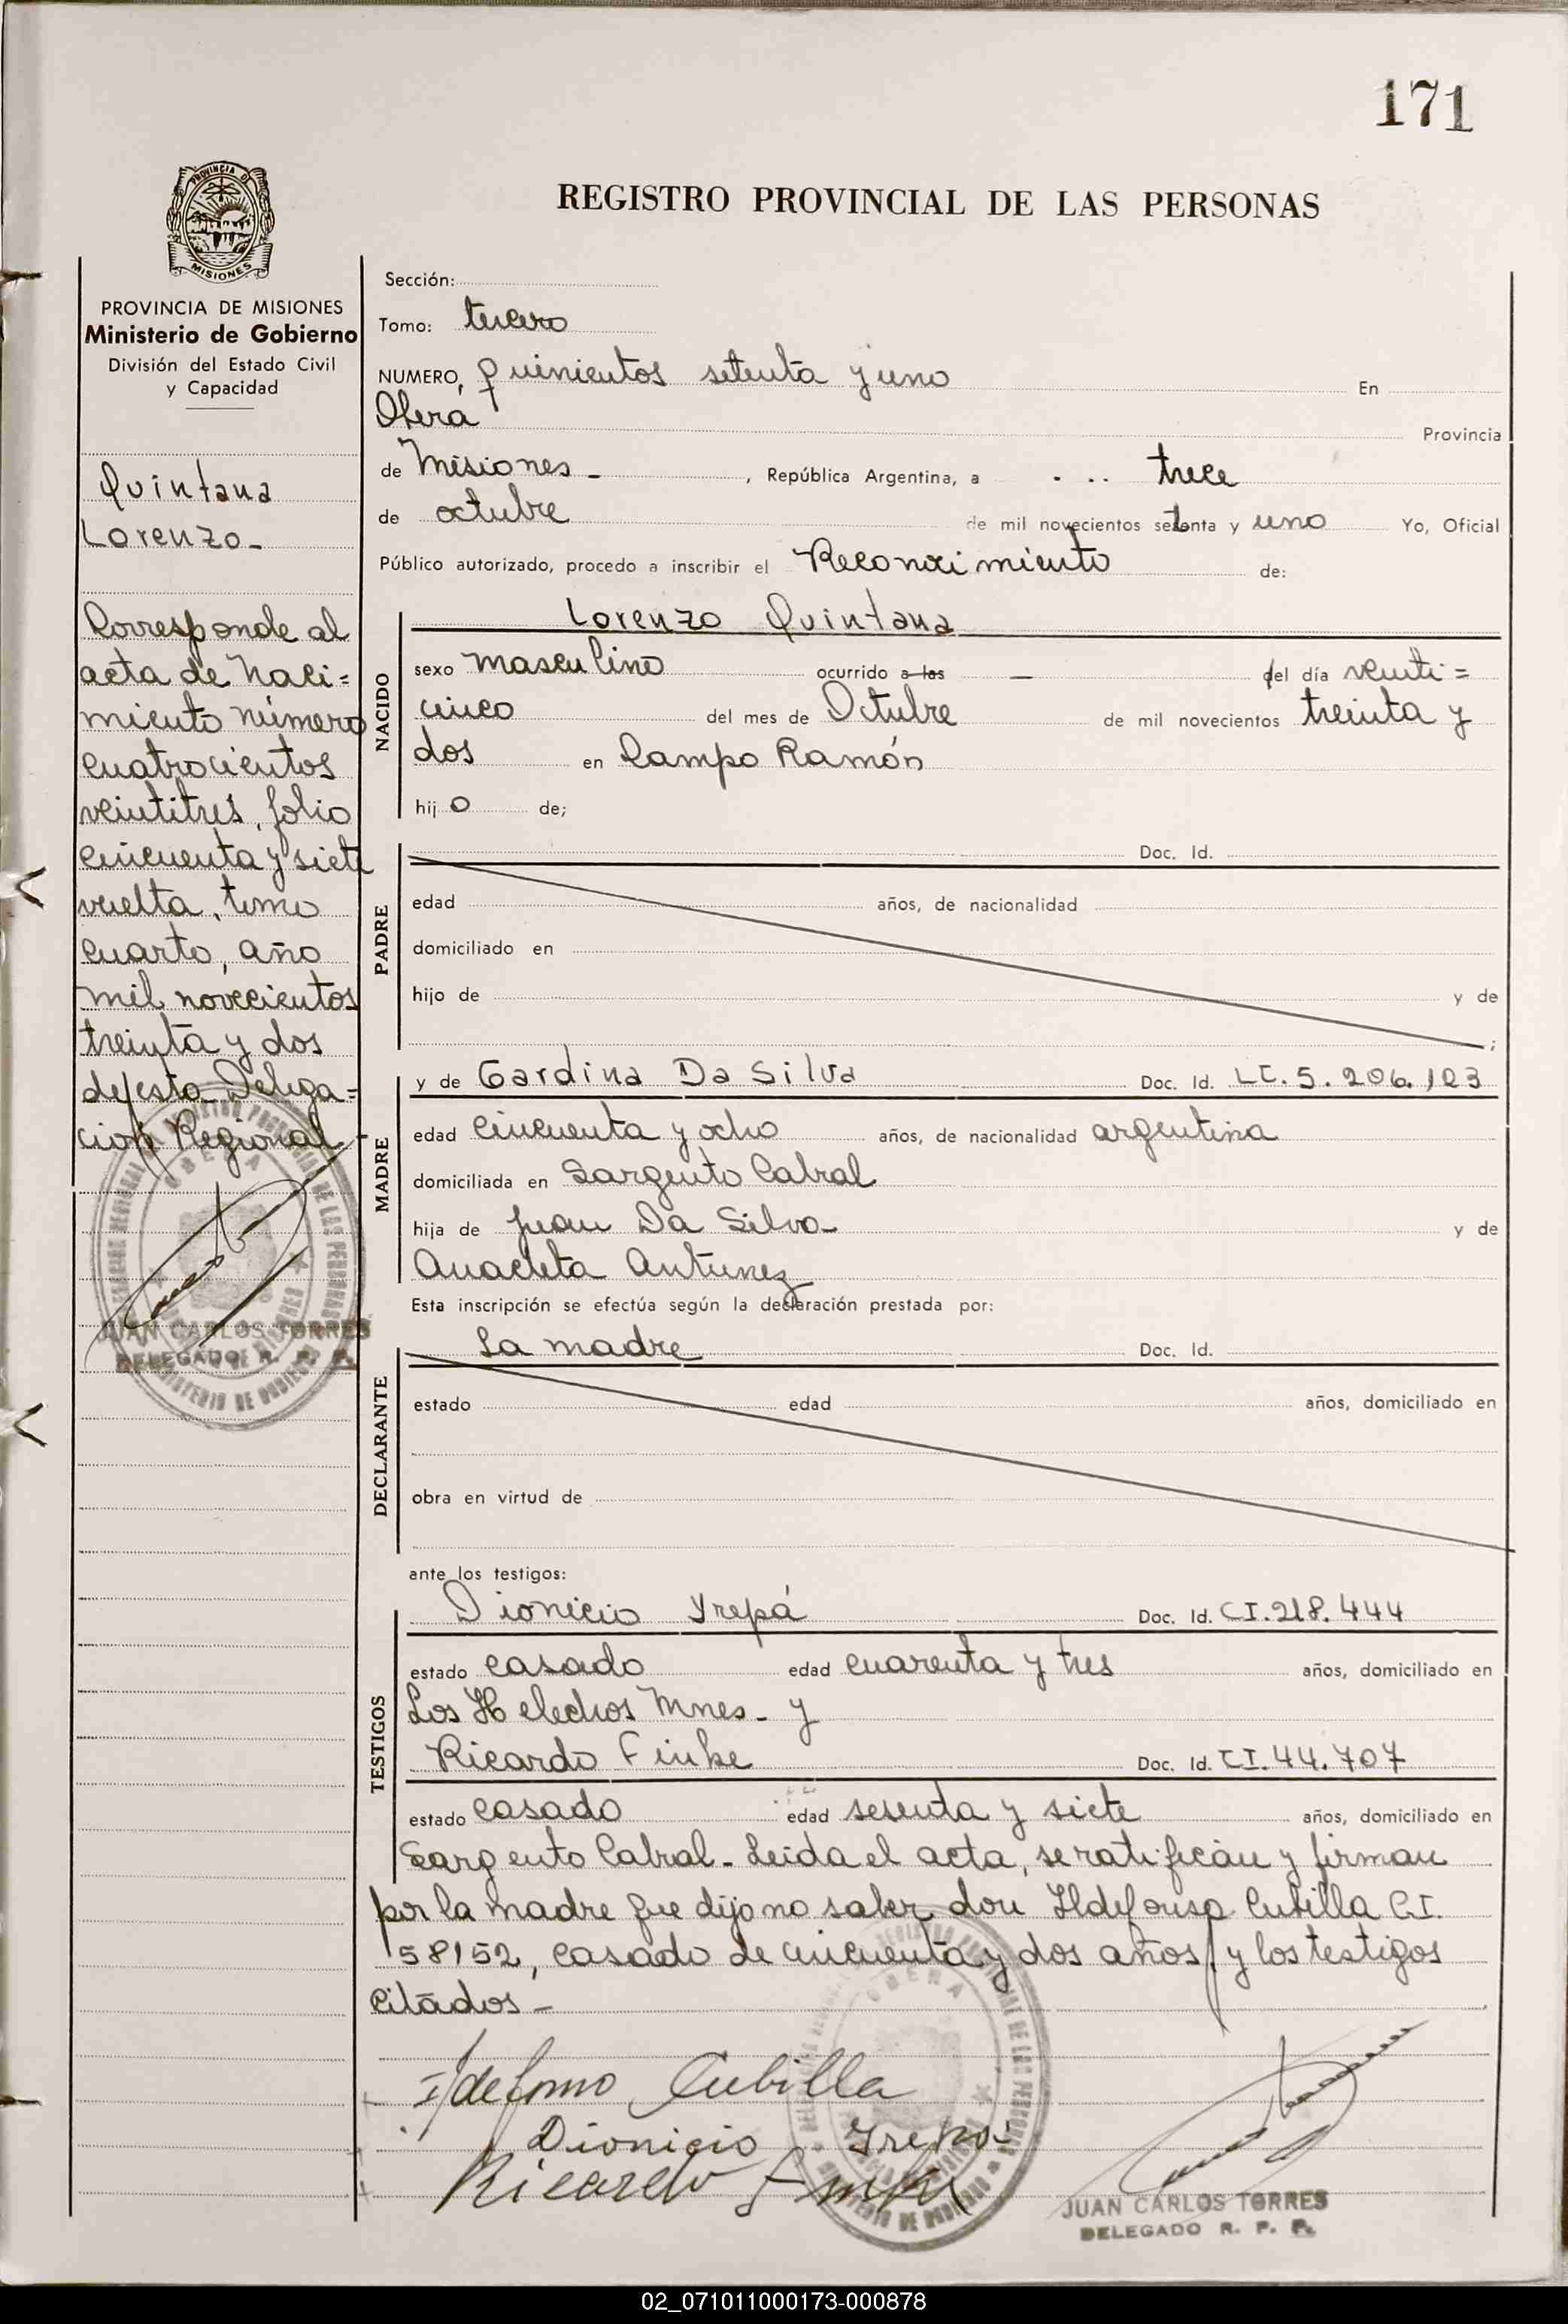 171
REGISTRO PROVINCIAL DE LAS PERSONAS
PROVINCIA DE MISIONES
PROVINCIA DE MISIONES
Ministerio de Gobierno
División del Estado Civil
y Capacidad
Quintana
Lorenzo-
Corresponde al
acta de Naci=
miento número
cuatrocientos
veintitres, folio
cincuenta y siete
vuelta, tomo
cuarto, año
mil novecientos
treinta y dos
de esta Delega=
ción Regional
JUAN CARLOS TORRES
DELEGADO R. P. P.
Sección:
Tomo: tercero
NUMERO, quinientos setenta y uno En
Oberá Provincia
de Misiones - , República Argentina, a trece
de octubre de mil novecientos setenta y uno Yo, Oficial
Público autorizado, procedo a inscribir el Reconocimiento de:
NACIDO
Lorenzo Quintana
sexo masculino ocurrido a las — del día veinti=
cinco del mes de Octubre de mil novecientos treinta y
dos en Campo Ramón
hijo de;
PADRE
Doc. Id.
edad años, de nacionalidad
domiciliado en
hijo de y de
;
MADRE
y de Gardina Da Silva Doc. Id. LC. 5.206.123
edad cincuenta y ocho años, de nacionalidad argentina
domiciliada en Sargento Cabral
hija de Juan Da Silva- y de
Anacleta Antunez
Esta inscripción se efectúa según la declaración prestada por:
DECLARANTE
La madre Doc. Id.
estado edad años, domiciliado en
obra en virtud de
ante los testigos:
TESTIGOS
Dionicio Yrepá Doc. Id. CI. 218.444
estado casado edad cuarenta y tres años, domiciliado en
Los Helechos Mnes- y
Ricardo Finke Doc. Id. CI. 44.707
estado casado edad sesenta y siete años, domiciliado en
Sargento Cabral- Leida el acta, se ratifican y firman
por la madre que dijo no saber don Ildefonso Cubilla C.I.
58152, casado de cincuenta y dos años y los testigos
citados-
Ildefonso Cubilla
Dionicio Yrepá
Ricardo Finke
JUAN CARLOS TORRES
DELEGADO R. P. P.
02_071011000173-000878